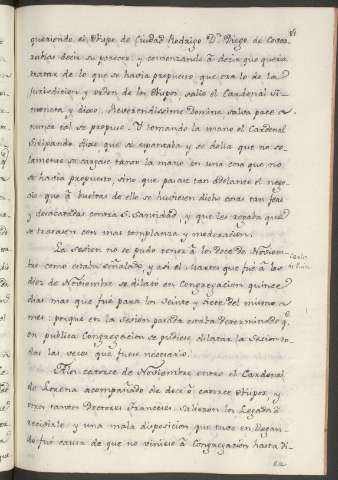 queriendo el Obispo de Ciudad Rodrigo D.n Diego de Covar
rubias decir su parecer, y comenzando â decir que queria
tratar de lo que se havia propuesto, que era lo de la
Jurisdicion y orden de los Obispos, salio el Cardenal Si-
moneta y dixo: Reverendissime Domine salva pace
nunca tal se propuso. Y tomando la mano el Cardenal
Seripando dixo que se espantaba y se dolia que no so-
lamente se atajase tanto la mano en una cosa que no
se havia propuesto, sino que pasase tan adelante el nego-
cio que â bueltas de ello se huviesen dicho cosas tan feas
y desacatadas contra S. Santidad, y que les rogaba que
se tratasen con mas templanza y moderacion.
La sesion no se pudo tener â los doce de Noviem-
bre como estaba señalado y asi el martes que fuê â los
diez de Noviembre se dilatò en Congregacion quince
dias mas que fuê para los veinte y siete del mismo
mes: porque en la sesion pasada estaba determinado q.e
en publica Congregacion se pudiese dilatar la Sesion to-
das las veces que fuese necesario.
A los catorce de Noviembre entrò el Cardenal
de Lorena acompañado de doce ô catorce Obispos, y
otros tantos Doctores Franceses. Salieron los Legados â
recibirle y una mala disposicion que tuvo en llegan-
do fuê causa de que no viniese â Congregacion hasta